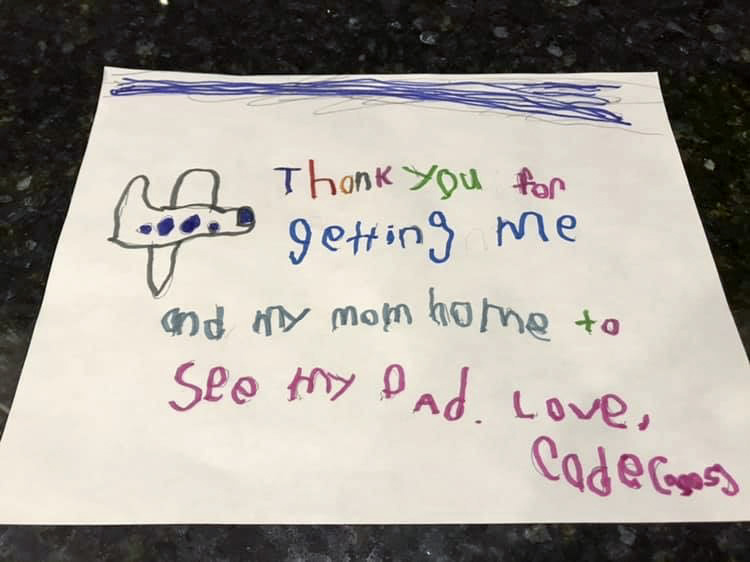 Thank you for
getting me
and my mom home to
see my DAd. Love,
Cade (age 5)